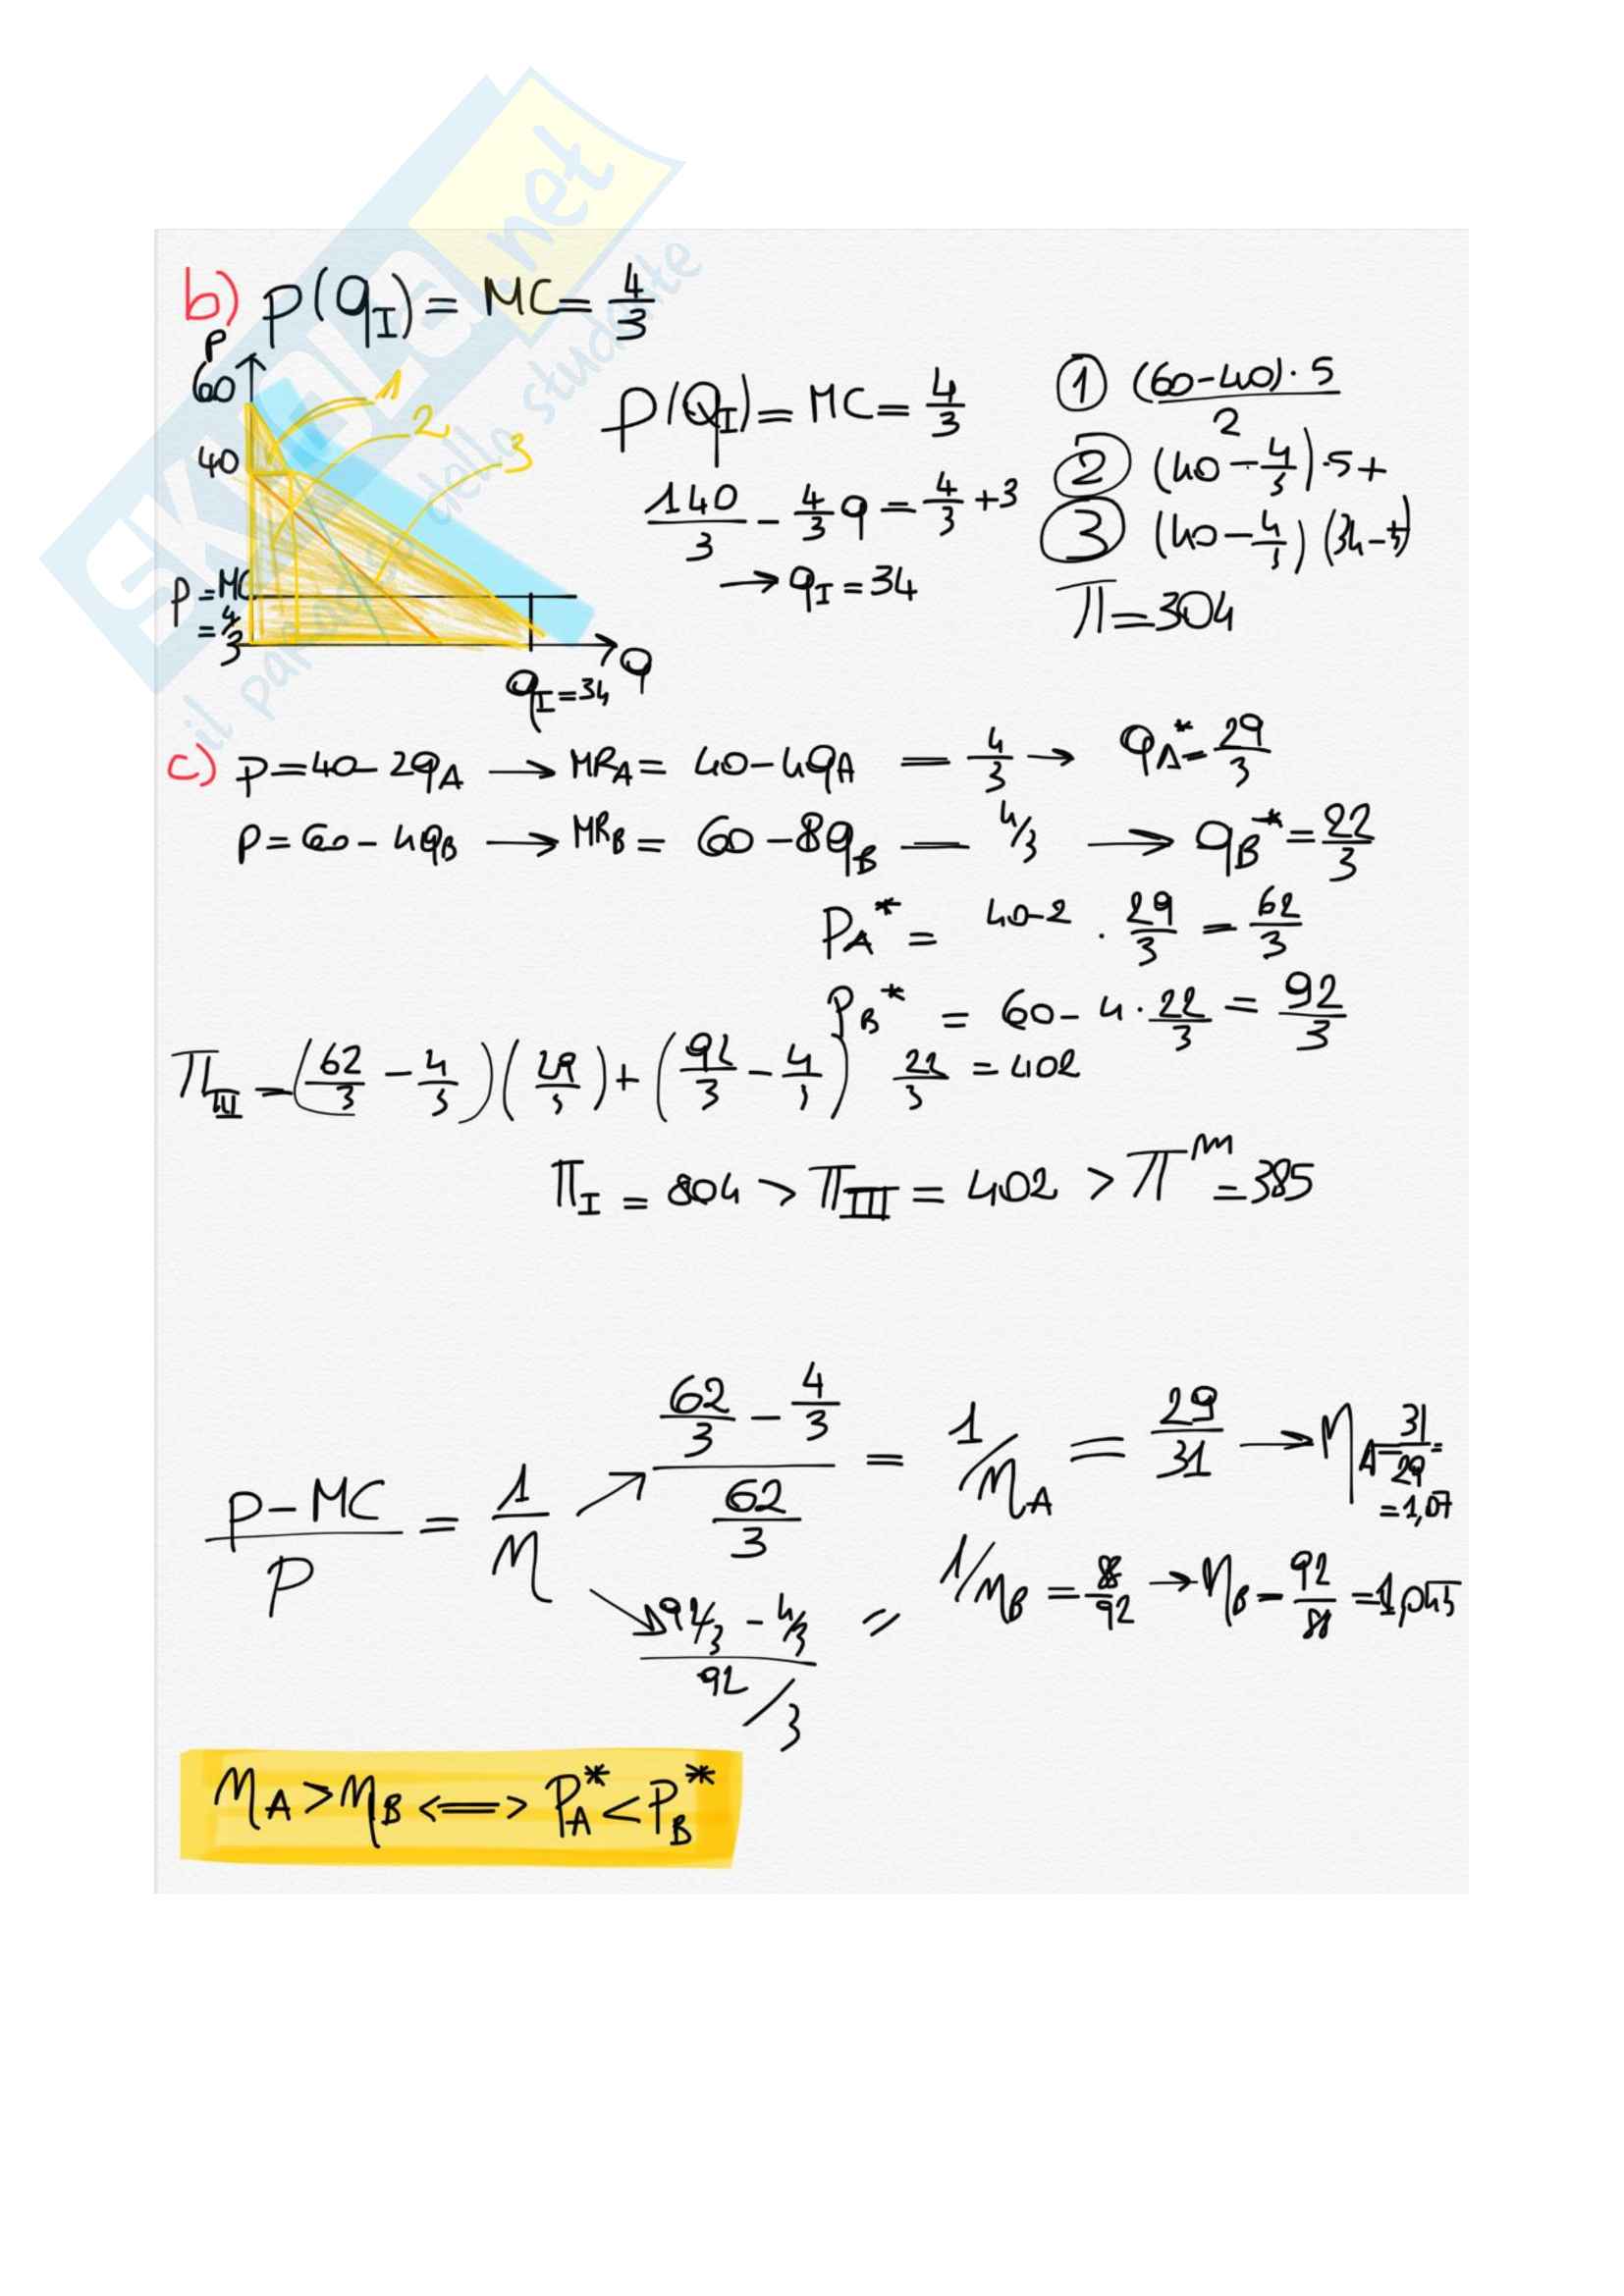 SKUOLA.net
il paradiso dello studente
b) p(q_I) = MC = 4/3
P
60
1
2
40
3
P = MC
= 4/3
q_I = 34
Q
p(Q_I) = MC = 4/3
140/3 - 4/3 q = 4/3 +3
→ q_I = 34
① (60-40)·5 / 2
② (40 - 4/3)·5 +
③ (40 - 4/3)(34-5)
π = 304
c) p = 40 - 2q_A → MR_A = 40 - 4q_A = 4/3 → q_A* = 29/3
p = 60 - 4q_B → MR_B = 60 - 8q_B = 4/3 → q_B* = 22/3
P_A* = 40-2 · 29/3 = 62/3
P_B* = 60 - 4 · 22/3 = 92/3
π_III = (62/3 - 4/3)(29/3) + (92/3 - 4/3) 22/3 = 402
π_I = 804 > π_III = 402 > π^m = 385
(P - MC)/P = 1/η ↗ (62/3 - 4/3)/(62/3) = 1/η_A = 29/31 → η_A = 31/29 = 1,07
↘ (92/3 - 4/3)/(92/3) = 1/η_B = 88/92 → η_B = 92/88 = 1,045
η_A > η_B <=> P_A* < P_B*